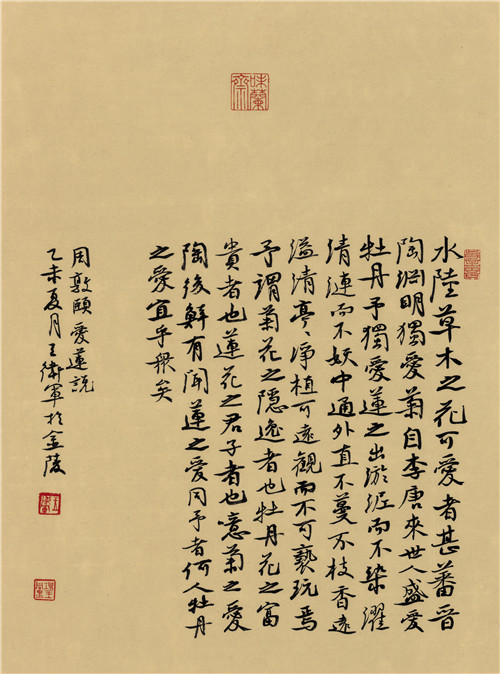 味蘭齋
水陸草木之花可愛者甚蕃晋
陶渊明獨愛菊自李唐來世人盛愛
牡丹予獨愛蓮之出淤泥而不染濯
清漣而不妖中通外直不蔓不枝香遠
溢清亭〻淨植可遠觀而不可褻玩焉
予謂菊花之隱逸者也牡丹花之富
貴者也蓮花之君子者也噫菊之愛
陶後鮮有聞蓮之愛同予者何人牡丹
之愛宜乎衆矣
周敦頤愛蓮説
乙未夏月王衛軍於金陵